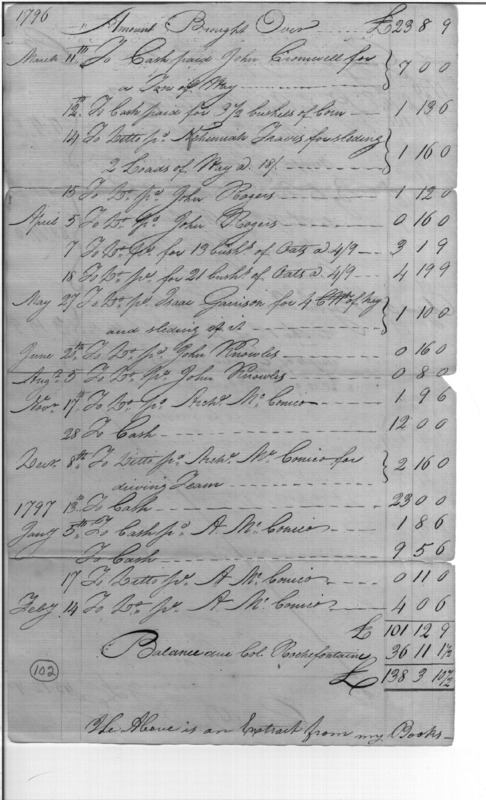 1796 " Amount Brought Over £23 8 9
March 11th To Cash paid John Cromwell for
a Ton of Hay 7 0 0
12th To Cash paid for 3 1/2 bushels of Corn 1 13 6
14 To Ditto pd Nehemiah Travis for sleding
2 Loads of Hay a 18/ 1 16 0
15 To Do pd John Rogers 1 12 0
April 5 To Do pd John Rogers 0 16 0
7 To Do pd for 13 Bushs of Oats a 4/9 3 1 9
18 To Do pd for 21 bushs of Oats a 4/9 4 19 9
May 27 To Do pd Isaac Garrison for 4 Cwt of hay
and sleding of it 1 10 0
June 2th To Do pd John Knowles 0 16 0
Augt 5 To Do pd John Knowles 0 8 0
Novr 17th To Do pd Archd McComico 1 9 6
28 To Cash 12 0 0
Decr 8th To Ditto pd Archd McComico for
driving Team 2 16 0
1797 13th To Cash 23 0 0
Jany 5th To Cash pd A McComico 1 8 6
To Cash 9 5 6
17 To Ditto pd A McComico 0 11 0
Feby 14 To Do pd A McComico 4 0 6
£ 101 12 9
Balance due Col. Rochefontaine 36 11 1 1/2
£ 138 3 10 1/2
102
The Above is an Extract from my Books